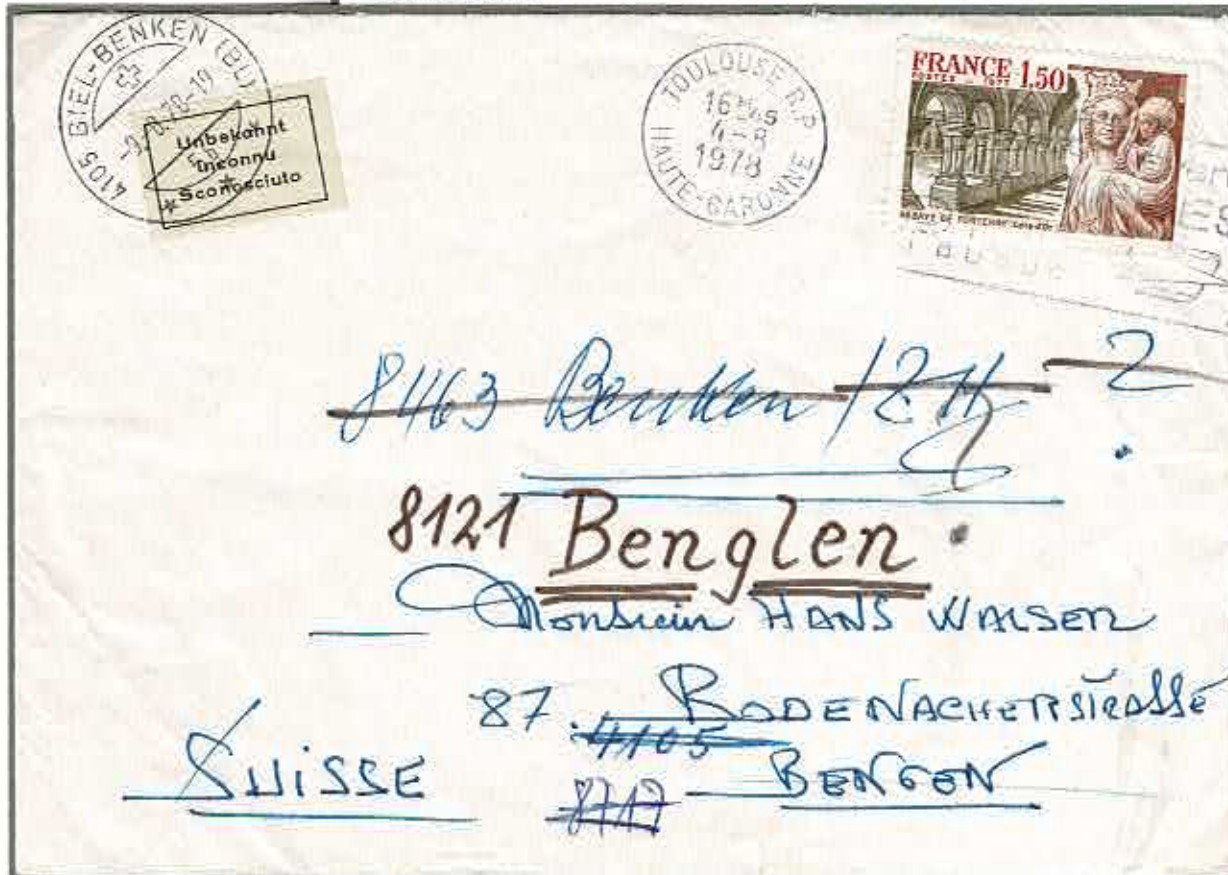 4105 BIEL-BENKEN (BL)
-9.8.78-19
Unbekannt
Inconnu
Sconosciuto
TOULOUSE R.P
16H45
4-8
1978
HAUTE-GARONNE
FRANCE 1,50
POSTES 1977
ABBAYE DE FONTENAY Côte-d'Or
8463 Benken / ZH ?
8121 Benglen
Monsieur HANS WALSER
87 BODENACHERSTRASSE
4105
SUISSE BENGEN
8717